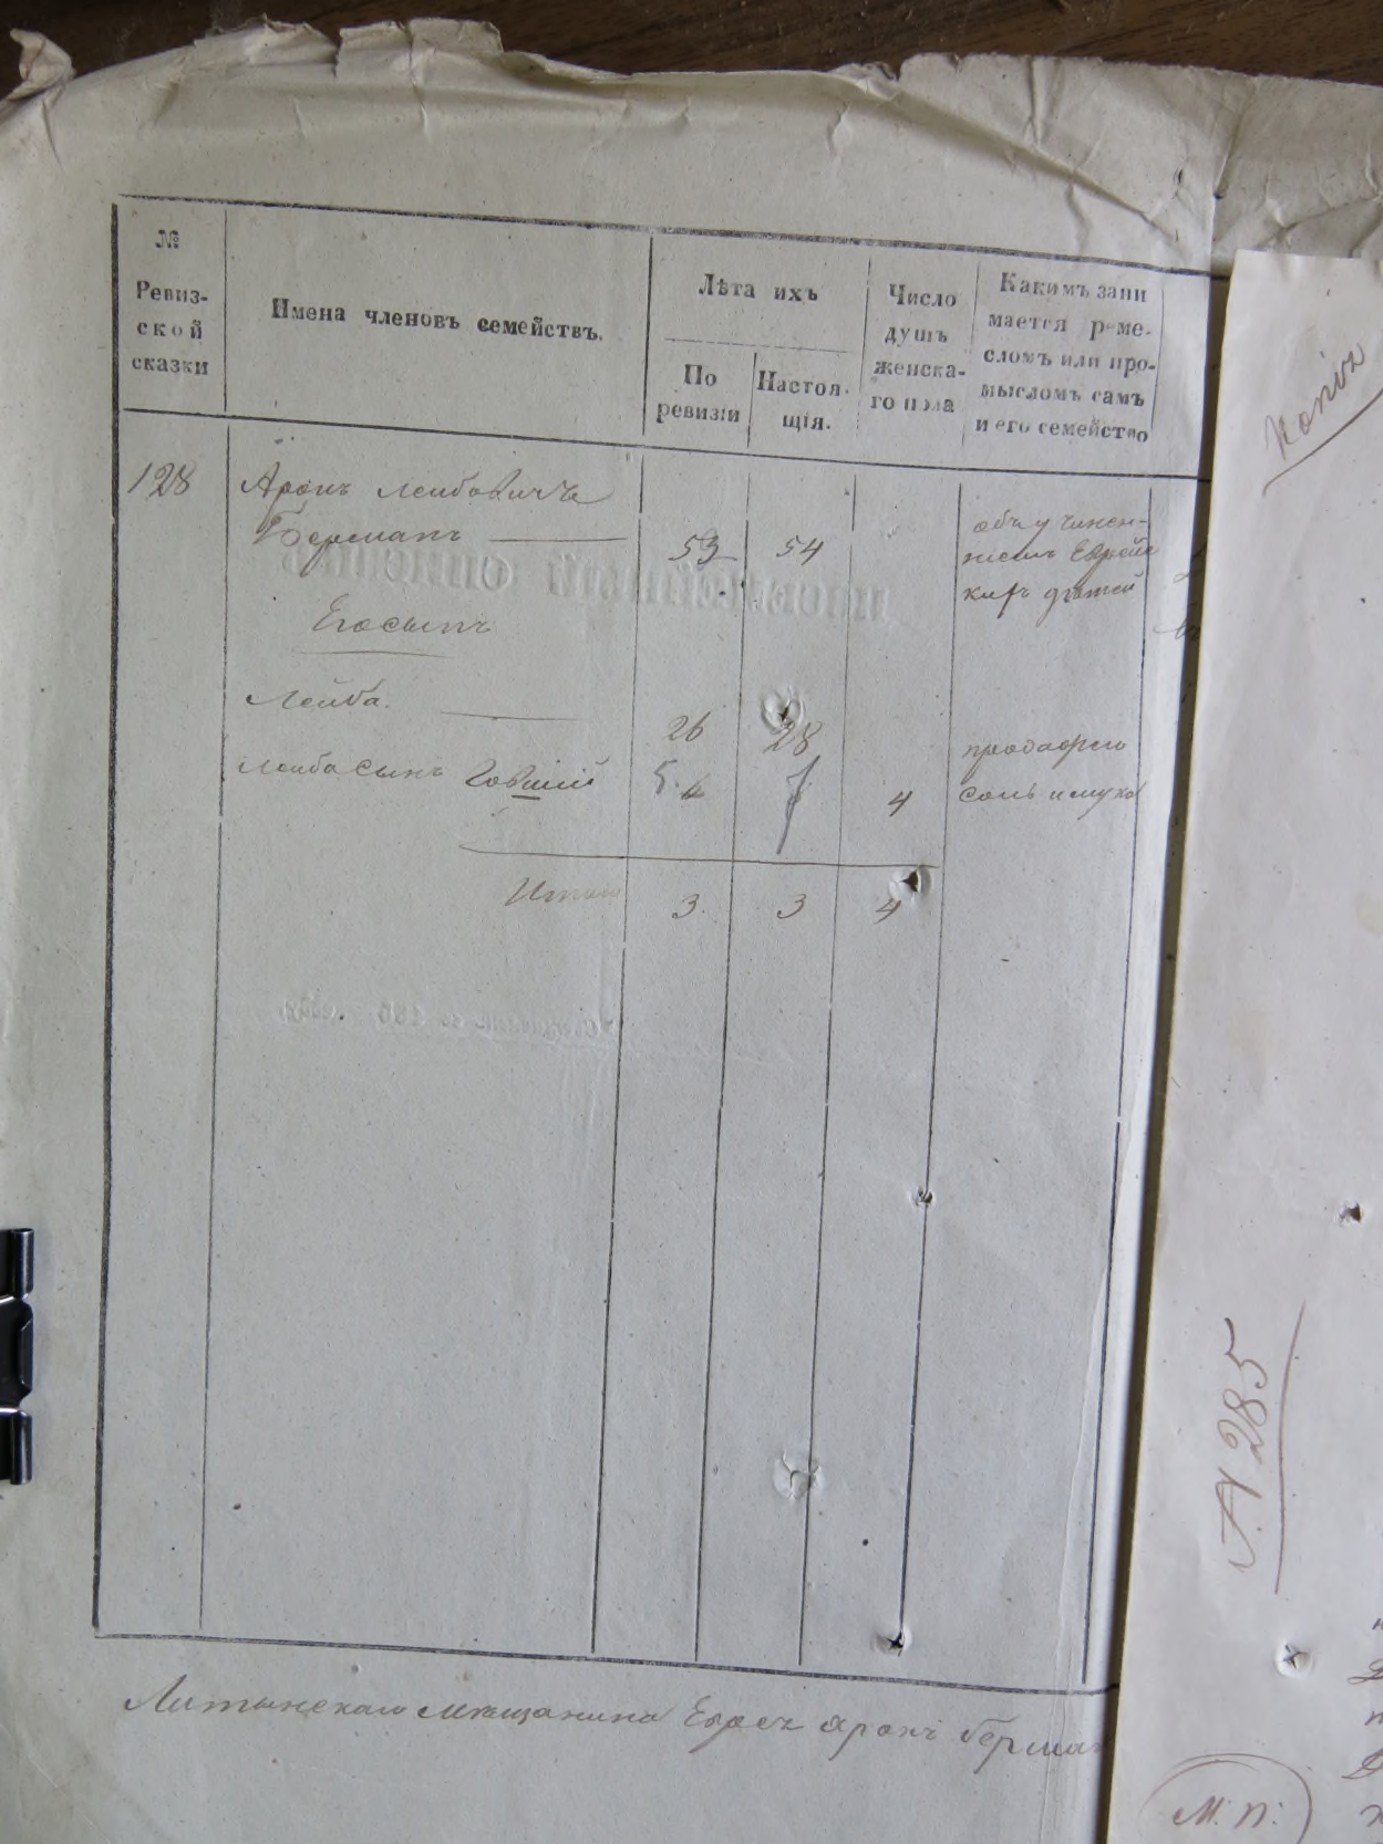 №
Ревиз-
ской
сказки
Имена членовъ семействъ.
Лѣта ихъ
По
ревизіи
Настоя-
щія.
Число
душъ
женска-
го пола
Какимъ зани
мается реме-
сломъ или про-
мысломъ самъ
и его семейство
128
Аронъ Лейбовичъ
Берманъ 53 54
обученіемъ Еврейс
кихъ дѣтей
Его сынъ
Лейба. 26 28
продажею
Лейба сынъ 5 7 4 соль и мука
Итого 3 3 4
Литынскаго мѣщанина Еврея Аронъ Берман
Копія
А 285
М: П: